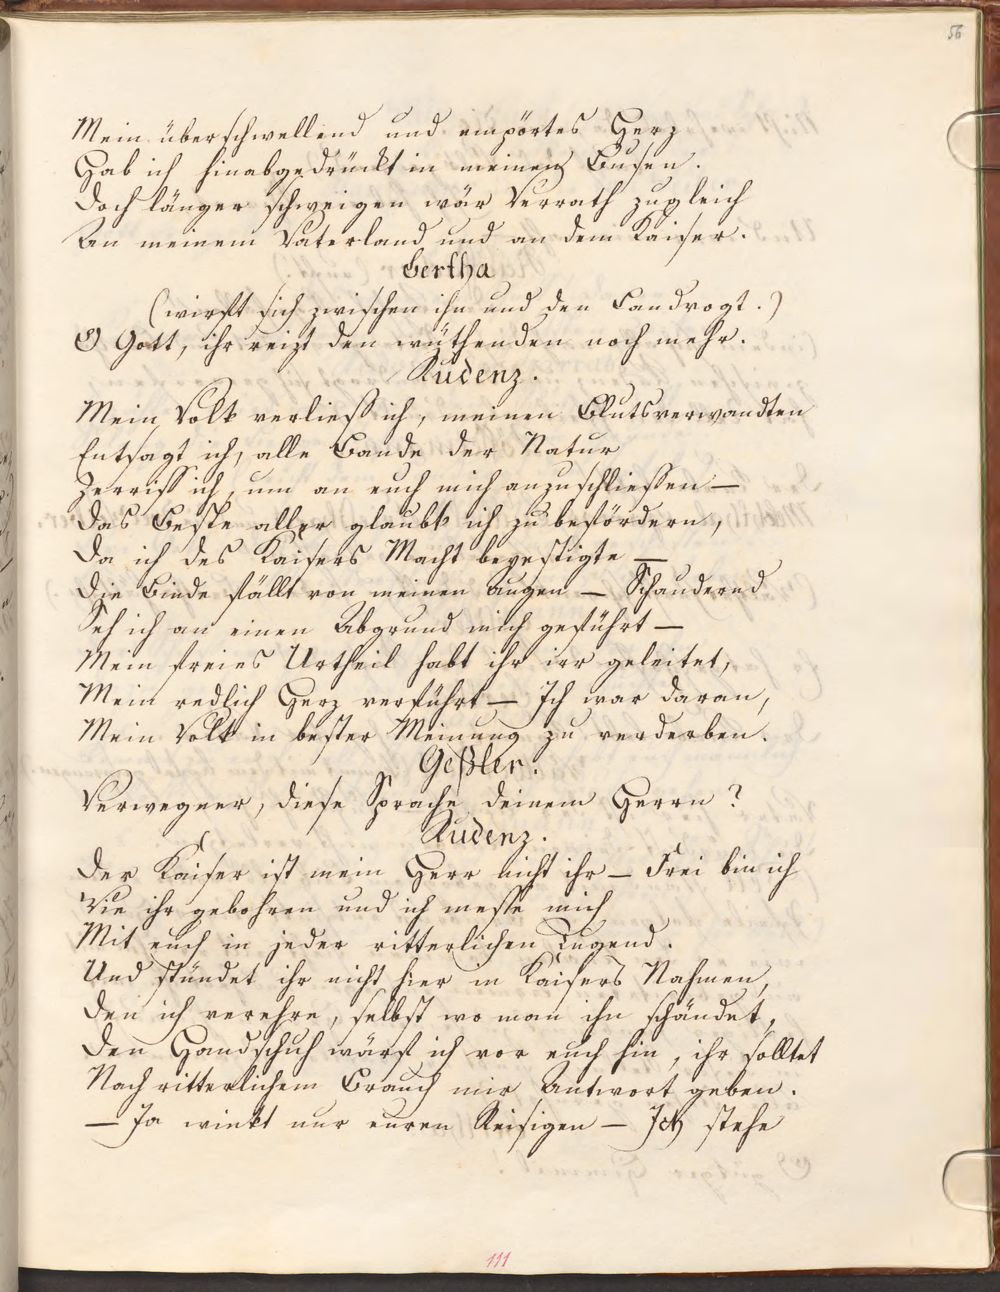 56
Mein überschwellend und empörtes Herz
Hab ich hinabgedrückt in meinen Busen.
Doch länger schweigen wär Verrath zugleich
An meinem Vaterland und an dem Kaiser.
Bertha
(wirft sich zwischen ihn und den Landvogt.)
O Gott, ihr reizt den wüthenden noch mehr.
Rudenz.
Mein Volk verließ ich, meinen Blutsverwandten
Entsagt ich, alle Bande der Natur
Zerriß ich, um an euch mich anzuschließen —
Das Beste aller glaubt ich zu befördern,
Da ich des Kaisers Macht bevestigte —
Die Binde fällt von meinen Augen — Schaudernd
Seh ich an einen Abgrund mich geführt —
Mein freies Urtheil habt ihr irr geleitet,
Mein redlich Herz verführt — Ich war daran,
Mein Volk in bester Meinung zu verderben.
Geßler.
Verwegner, diese Sprache deinem Herrn?
Rudenz.
Der Kaiser ist mein Herr nicht ihr — Frei bin ich
Wie ihr gebohren und ich messe mich
Mit euch in jeder ritterlichen Tugend.
Und stündet ihr nicht hier in Kaisers Nahmen,
Den ich verehre, selbst wo man ihn schändet,
Den Handschuh wärf ich vor euch hin, ihr solltet
Nach ritterlichem Brauch mir Antwort geben.
— Ja winkt nur euren Reisigen — Ich stehe
111